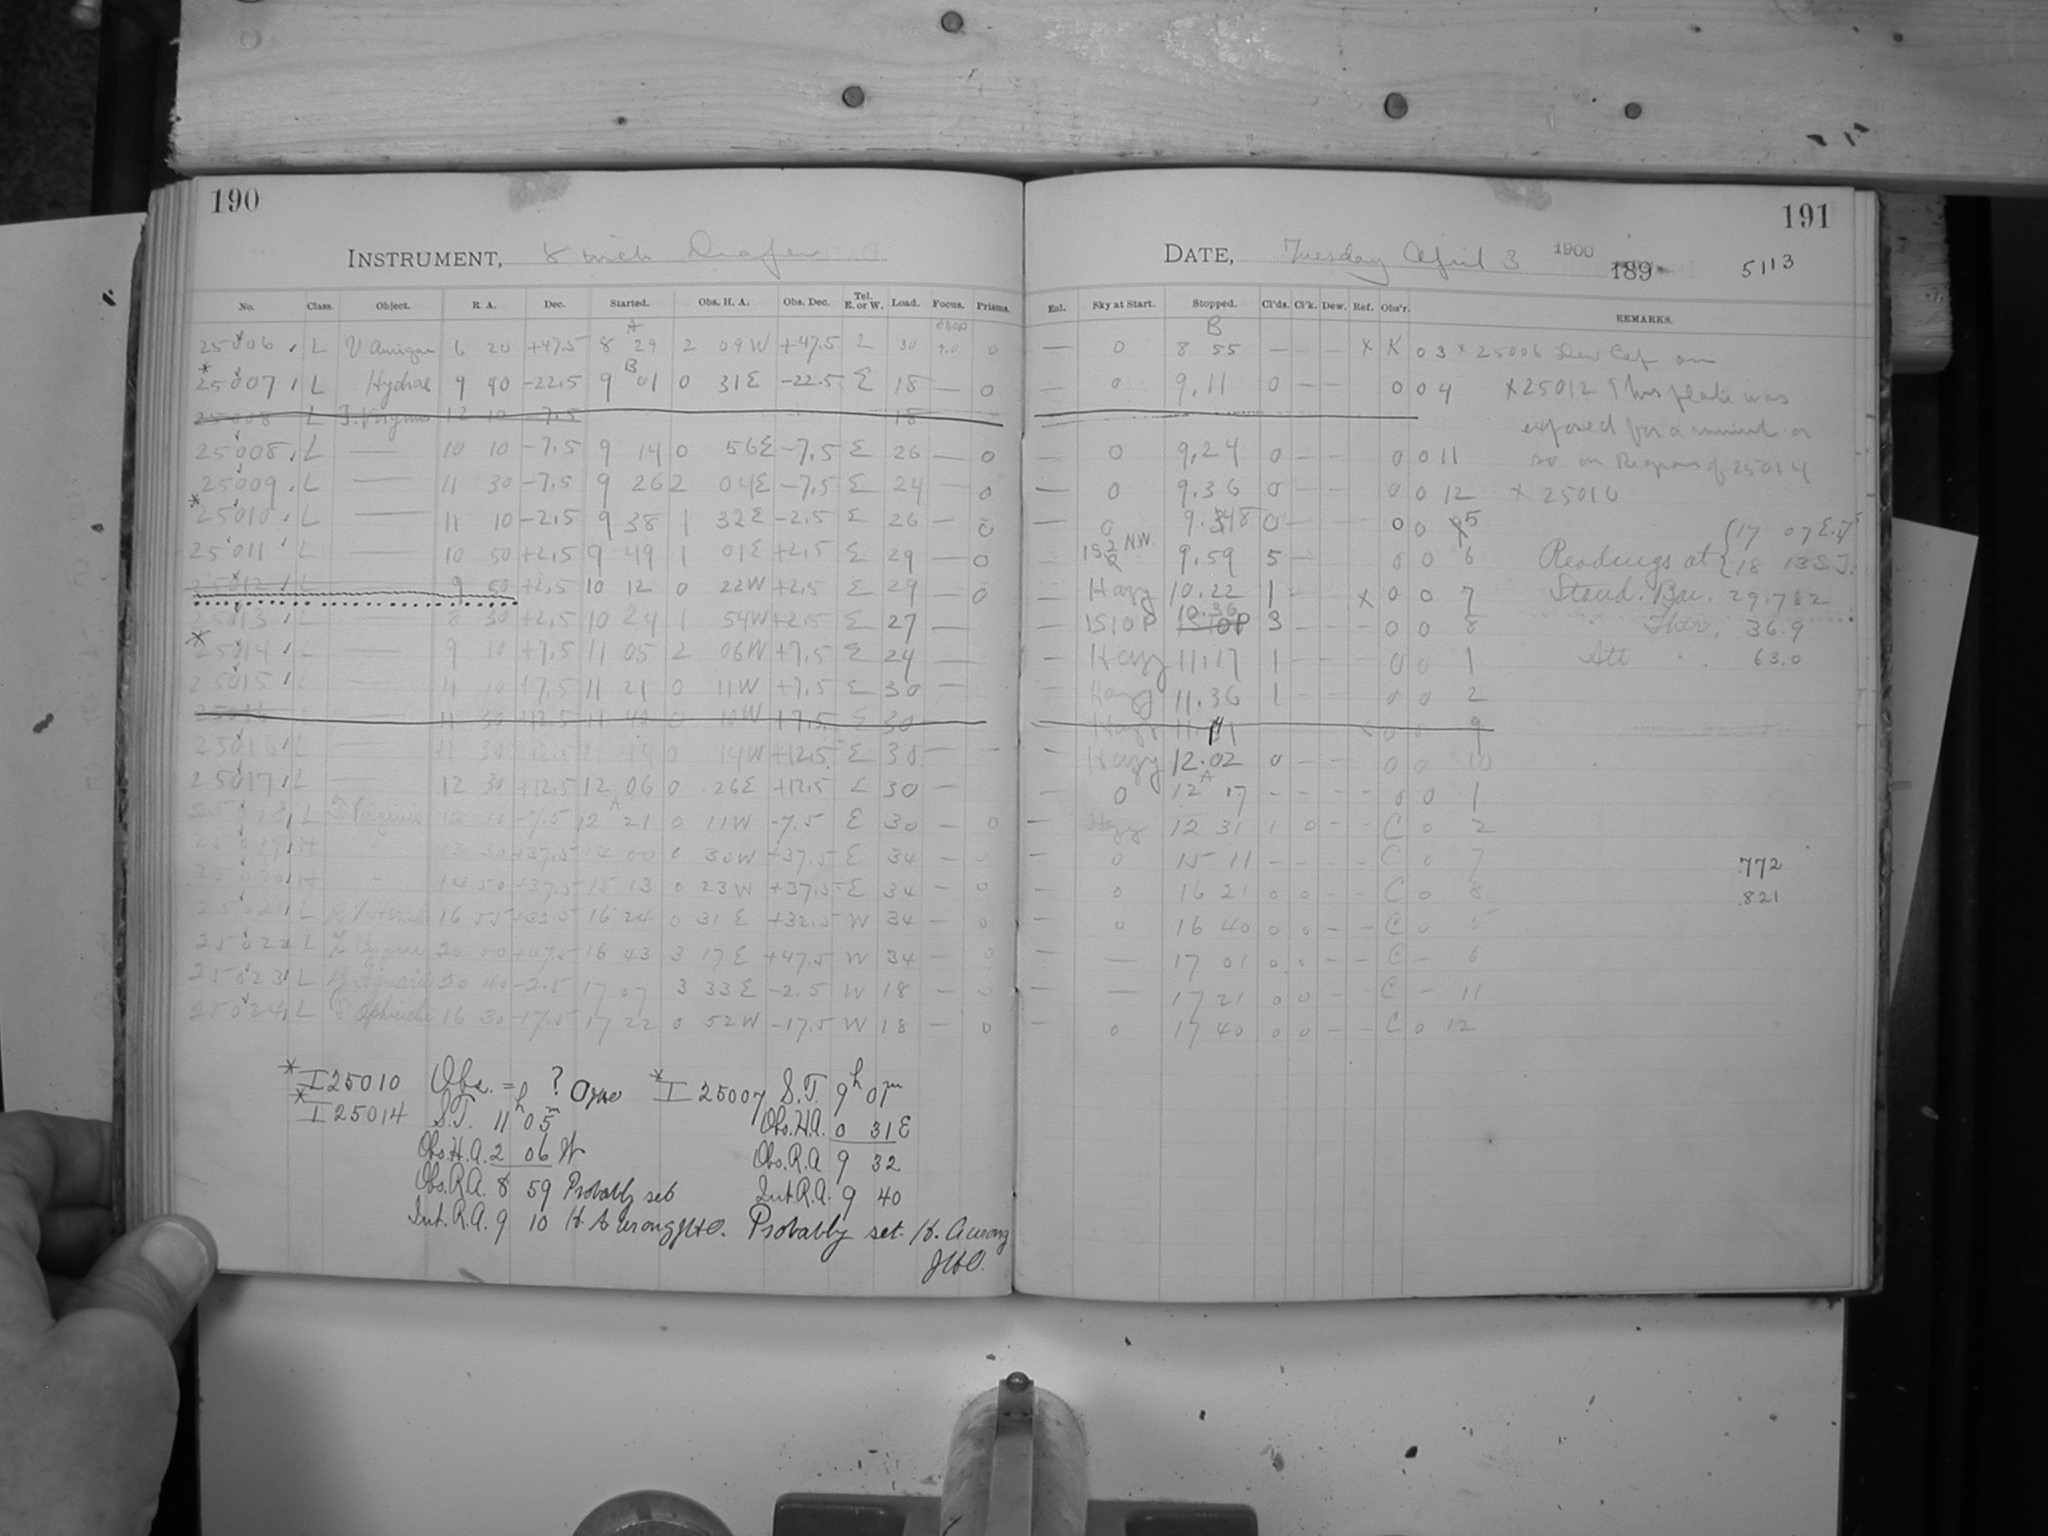 190
INSTRUMENT, 8 inch Draper
No. Class. Object. R. A. Dec. Started. Obs. H. A. Obs. Dec. Tel. E. or W. Load. Focus. Prisms.
A
25006 L V Aurigae 6 20 +47.5 8 29 2 09W +47.5 30 9.0 0
B
* 25007 L Hydrae 9 40 -22.5 9 01 0 31E -22.5 E 18 — 0
25008 L T. Virginis 12 10 -7.5 18
25008 L — 10 10 -7.5 9 14 0 56E -7.5 E 26 — 0
25009 L — 11 30 -7.5 9 26 2 04E -7.5 E 24 — 0
* 25010 L — 11 10 -2.5 9 38 1 32E -2.5 E 26 — 0
25011 L — 10 50 +2.5 9 49 1 01E +2.5 E 29 — 0
25012 L 9 50 +2.5 10 12 0 22W +2.5 E 29 — 0
25013 L — 8 30 +2.5 10 24 1 54W +2.5 E 27 —
* 25014 L — 9 10 +7.5 11 05 2 06W +7.5 E 24 —
25015 L — 11 10 +7.5 11 21 0 11W +7.5 E 30 —
25016 — 11 30 +12.5 11 40 0 10W +7.5 E 30
25016 L — 11 30 +12.5 11 44 0 14W +12.5 E 30 — —
25017 L — 12 30 +12.5 12 06 0 26E +12.5 E 30 —
A
25018 L T Virginis 12 10 -7.5 12 21 0 11W -7.5 E 30 — 0
25019 H - 13 30 +37.5 14 00 0 30W +37.5 E 34 — 0
25020 H - 14 50 +37.5 15 13 0 23W +37.5 E 34 — 0
25021 L 16 55 +32.5 16 24 0 31 E +32.5 W 34 — 0
25022 L Z Cygni 20 00 +47.5 16 43 3 17 E +47.5 W 34 — 0
25023 L Aquarii 20 40 -2.5 17 07 3 33 E -2.5 W 18 — 0
25024 L S Ophiuchi 16 30 -17.5 17 22 0 52W -17.5 W 18 — 0
* I 25010 Obs. = ? One
* I 25014 S.T. 11h 05m
Obs. H.A. 2 06 W
Obs. R.A. 8 59 Probably set
Int. R.A. 9 10 H. A wrong JHO.
* I 25007 S.T. 9h 01m
Obs. H.A. 0 31 E
Obs. R.A 9 32
Int. R.A. 9 40
Probably set. H. A wrong
JHO.
191
DATE, Tuesday April 3 1900 189 5113
Enl. Sky at Start. Stopped. Cl'ds. Cl'k. Dew. Ref. Obs'r. REMARKS.
B
— 0 8 55 — — — X K 0 3 x 25006 Dew Cap on
— 0 9.11 0 — — 0 0 4 x 25012 This plate was
exposed for a minute or
— 0 9.24 0 — — 0 0 11 so on Region of 25014
— 0 9.36 0 — — 0 0 12 x 25016
— 0 9.48 0 — — 0 0 5 17 07 E.
— N.W. 9.59 5 — 0 0 6 Readings at 18 13 S.T.
— Hazy 10.22 1 — — X 0 0 7 Stand. Bar. 29.782
— 1S10P 10.36 3 — — — 0 0 8 Ther. 36.9
— Hazy 11.17 1 — — 0 0 1 Att 63.0
— Hazy 11.36 1 — — 0 0 2
Hazy 11.41 X 0 0 9
— Hazy 12.02 0 — — 0 0 10
A
— 0 12 17 — — — — 0 0 1
— 12 31 1 0 — — C 0 2
— 0 15 11 — — — — C 0 7 .772
— 0 16 21 0 0 — — C 0 8 .821
— 0 16 40 0 0 — — C 0 5
— — 17 01 0 0 — — C — 6
— — 17 21 0 0 — C — 11
— 0 17 40 0 0 — — C 0 12